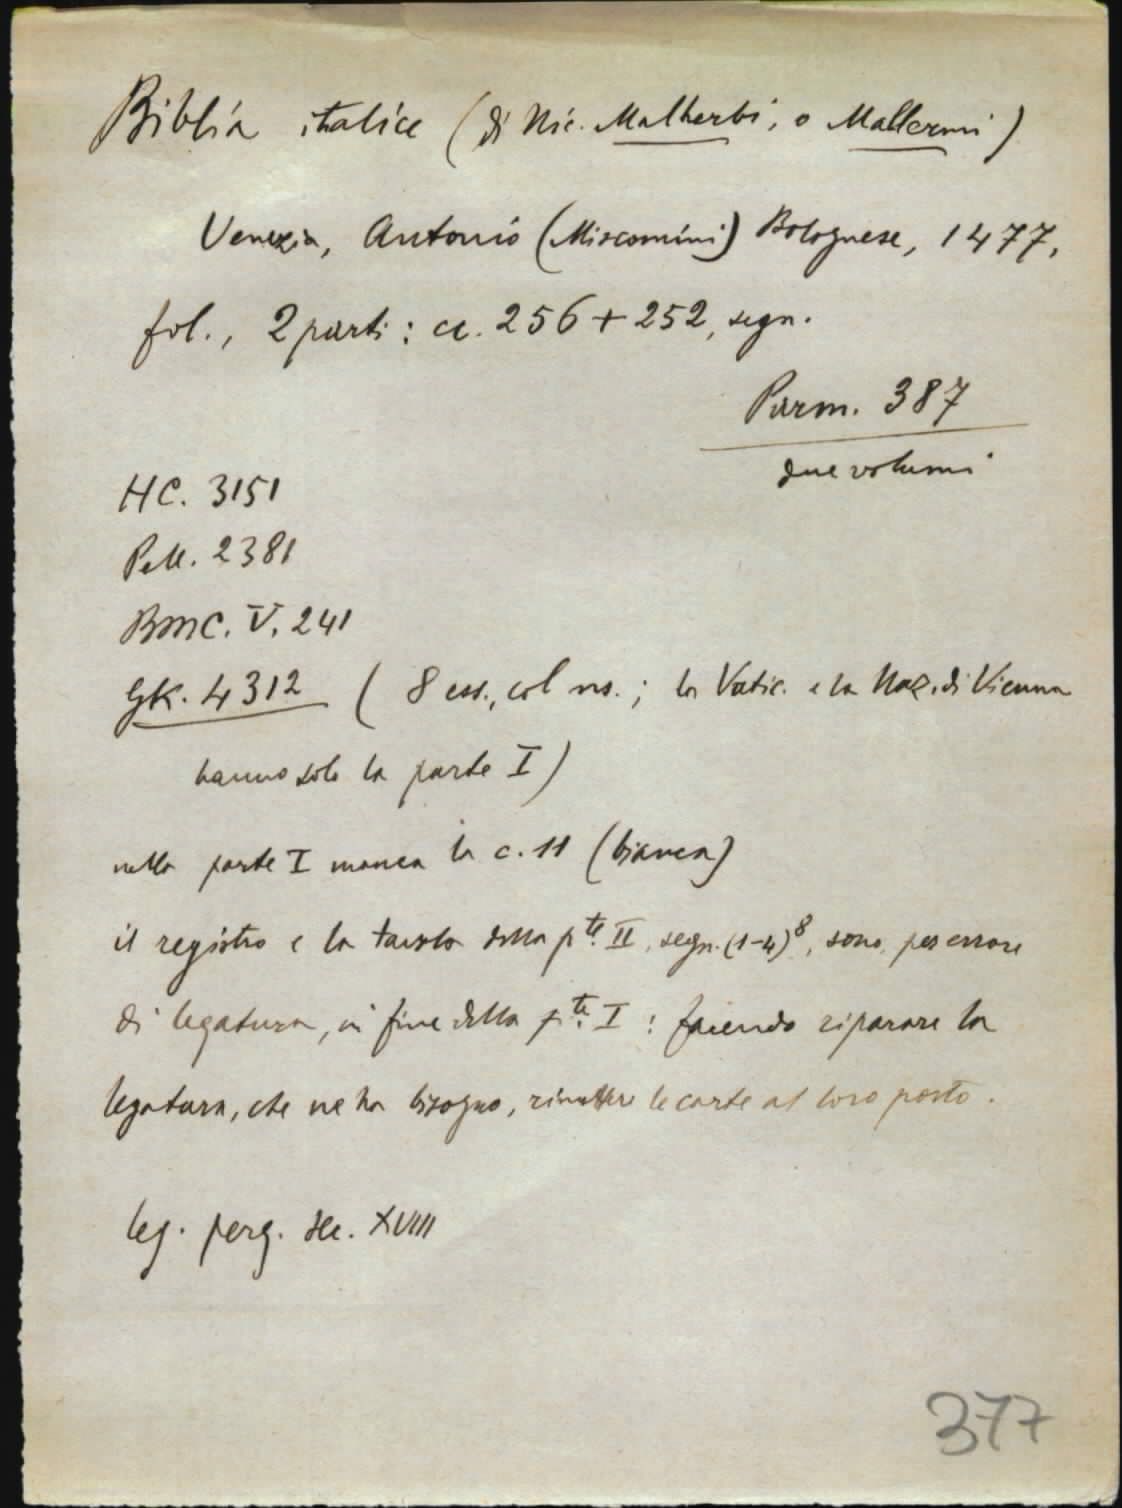 Biblia italice (di Nic. Malherbi, o Mallermi)
Venezia, Antonio (Miscomini) Bolognese, 1477,
fol., 2 parti: cc. 256 + 252, segn.
Parm. 387
due volumi
HC. 3151
Pell. 2381
BMC. V. 241
GK. 4312 ( 8 ess., col ns.; la Vatic. e la Naz. di Vienna
hanno solo la parte I)
nella parte I manca la c. 11 (bianca)
il registro e la tavola della pte. II, segn. (1-4)8, sono, per errore
di legatura, in fine della pte. I: facendo riparare la
legatura, che ne ha bisogno, rimettere le carte al loro posto.
leg. perg. sec. XVIII
377